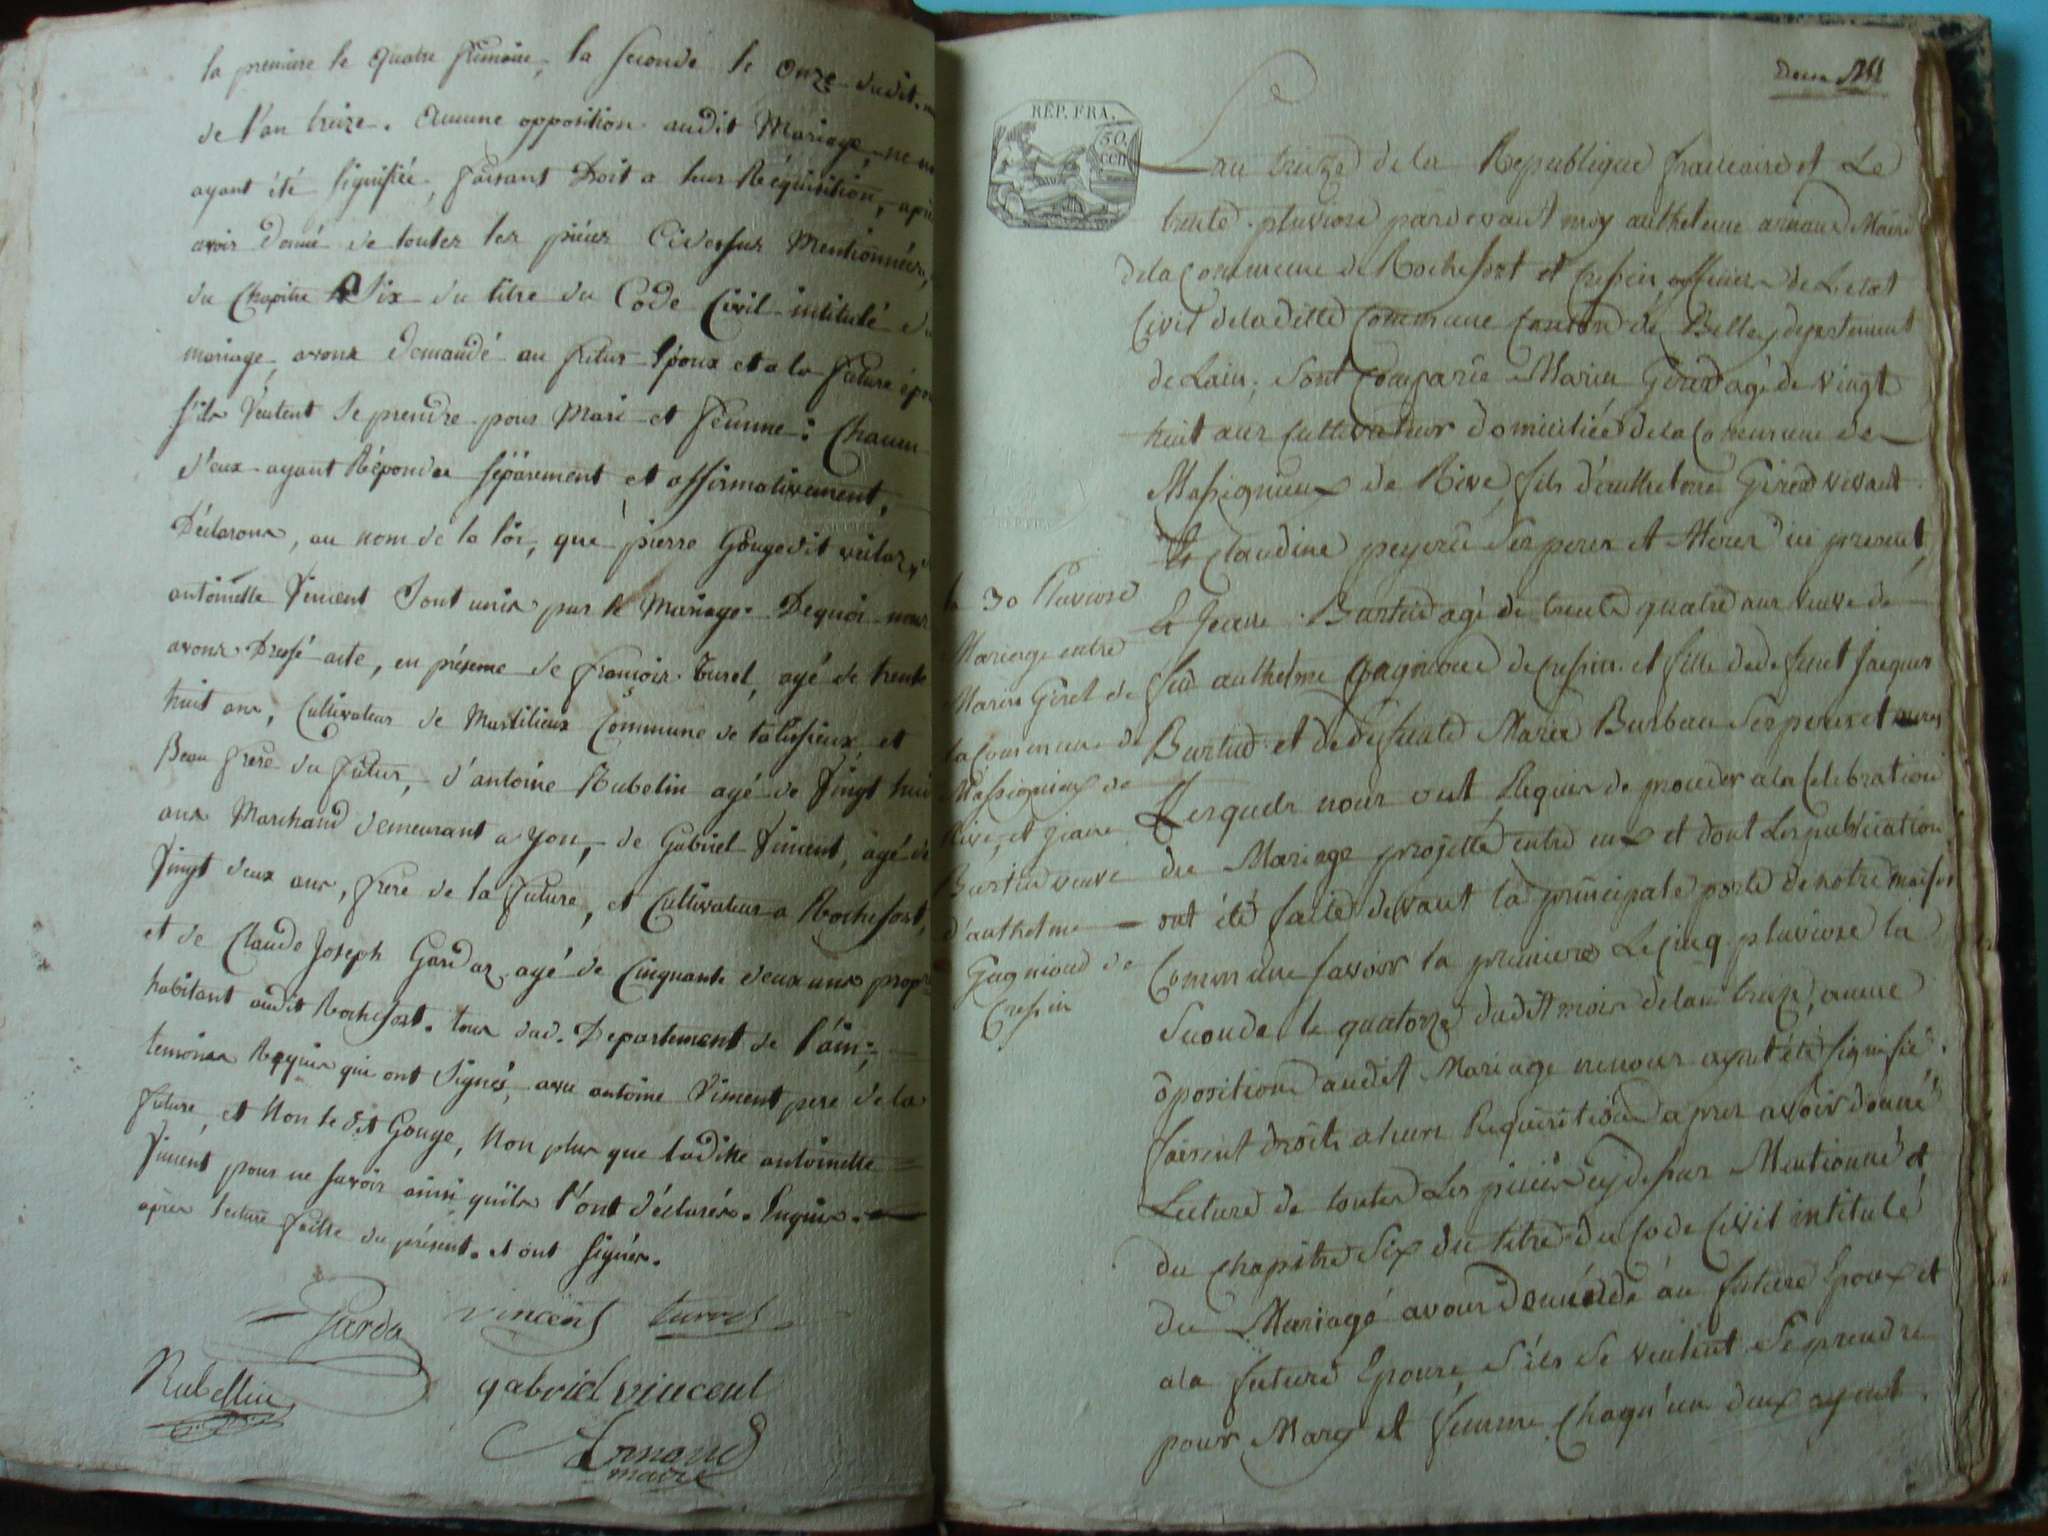 la premiere le quatre frimaire, la seconde le onze dudit
de l'an treize. Aucune opposition audit Mariage, ne
ayant été signifiée, faisant Droit a leur Réquisition, après
avoir donné de toutes les pièces Cidessus Mentionnées,
du Chapitre Six du titre du Code Civil intitulé du
mariage, avons demandé au futur Epoux et a la future
s'ils veulent se prendre pour Mari et femme : Chacun
d'eux ayant Répondu séparement et affirmativement,
Déclarons, au nom de la loi, que pierre Gouge dit
antoinette Vincent Sont unis par le Mariage. Dequoi nous
avons Dressé acte, en présence de françois Turel, agé de trente
huit ans, Cultivateur de Mustilieux Commune de talissieux et
Beau frère du futur, d'antoine Rubelin agé de Vingt huit
ans Marchand demeurant a yon, de Gabriel Vincent, agé de
Vingt deux ans, frere de la future, et Cultivateur a Rochefort,
et de Claude Joseph Gardaz agé de Cinquante deux ans
habitant audit Rochefort. tous dud. Departement de l'ain;
temoins Requis qui ont signés, avec antoine Vincent pere de la
future, et Non le dit Gouge, Non plus que ladite antoinette
Vincent pour ne savoir ainsi quils l'ont déclarés. Enquis.
après lecture faitte du présent. et ont signés.
Garda vincent turrel
Rubellin gabriel vincent
Arnaud
maire
Deux
RÉP. FRA.
50
CEN
Lan treize de la Republique francaise et Le
trente pluviose pardevant moy anthelme arnaud Maire
dela Commune de Rochefort et Cressin officier de Letat
Civil deladitte Commune Canton de Belley departement
de Lain, Sont Comparû Marin Girod agé de vingt
huit ans Cultivateur domicilié dela Commune de
Massignieux de Rive fils d'anthelme Girod vivant
et Claudine Ses peres et Meres ici present,
et Jeanne Burtin agé de trente quatre ans veuve de
feû anthelme Gagnioud de Cressin et fille de defunt Jacques
Burtin et de defunte Marie Burbau Ses peres et meres
Lesquels nous ont Requis de proceder a la Celebration
du Mariage projetté entre eux et dont Les publication
ont été faite devant la principale porte de notre maison
Commune savoir la premiere Le cinq pluviose la
Seconde le quatorze dudit mois delan treize, aucune
oposition audit Mariage ne nous ayant été signifié,
faisant droit a leur Requisition apres avoir donné
Lecture de toutes Les pieces cy dessus Mentionné et
du Chapitre Six du titre du Code Civil intitulé
du Mariage avons demandé au future Epoux et
a la future Epouse s'ils se veulent Se prendre
pour Mary et femme Chaqu'un deux ayant
le 30 Pluviose
Mariage entre
Marin Girod de
la Commune de
Massignieux de
Rive, et Jeanne
Burtin veuve
d'anthelme
Gagnioud de
Cressin